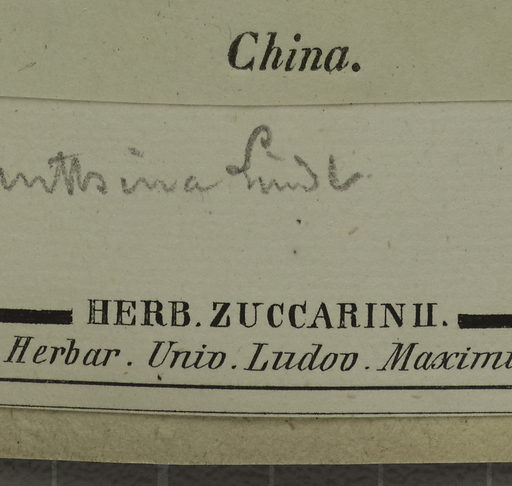 China.
Lindl
HERB. ZUCCARINII.
Herbar. Univ. Ludov. Maximi